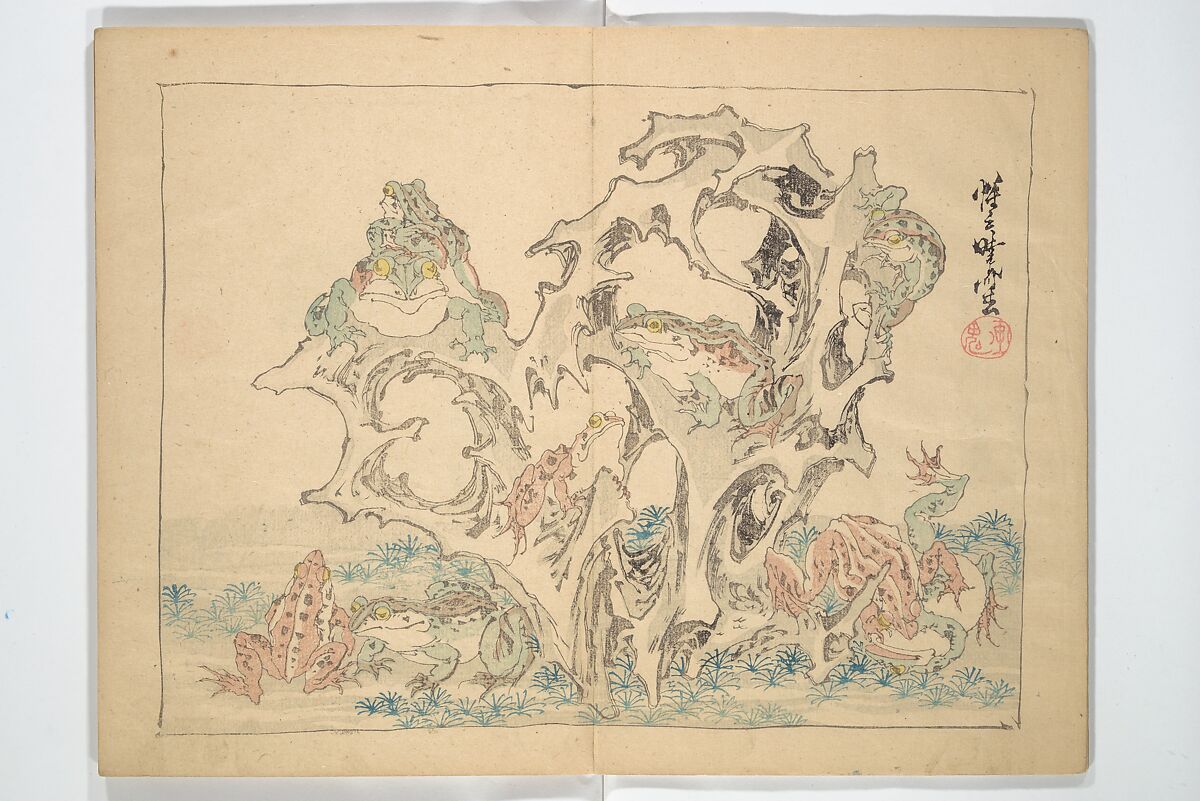 惺々暁斎